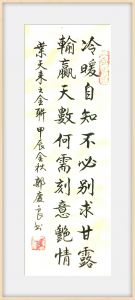 冷暖自知不必別求甘露
輸贏天數何需刻意艷情
業天来士金聯 甲辰金秋鄭度書